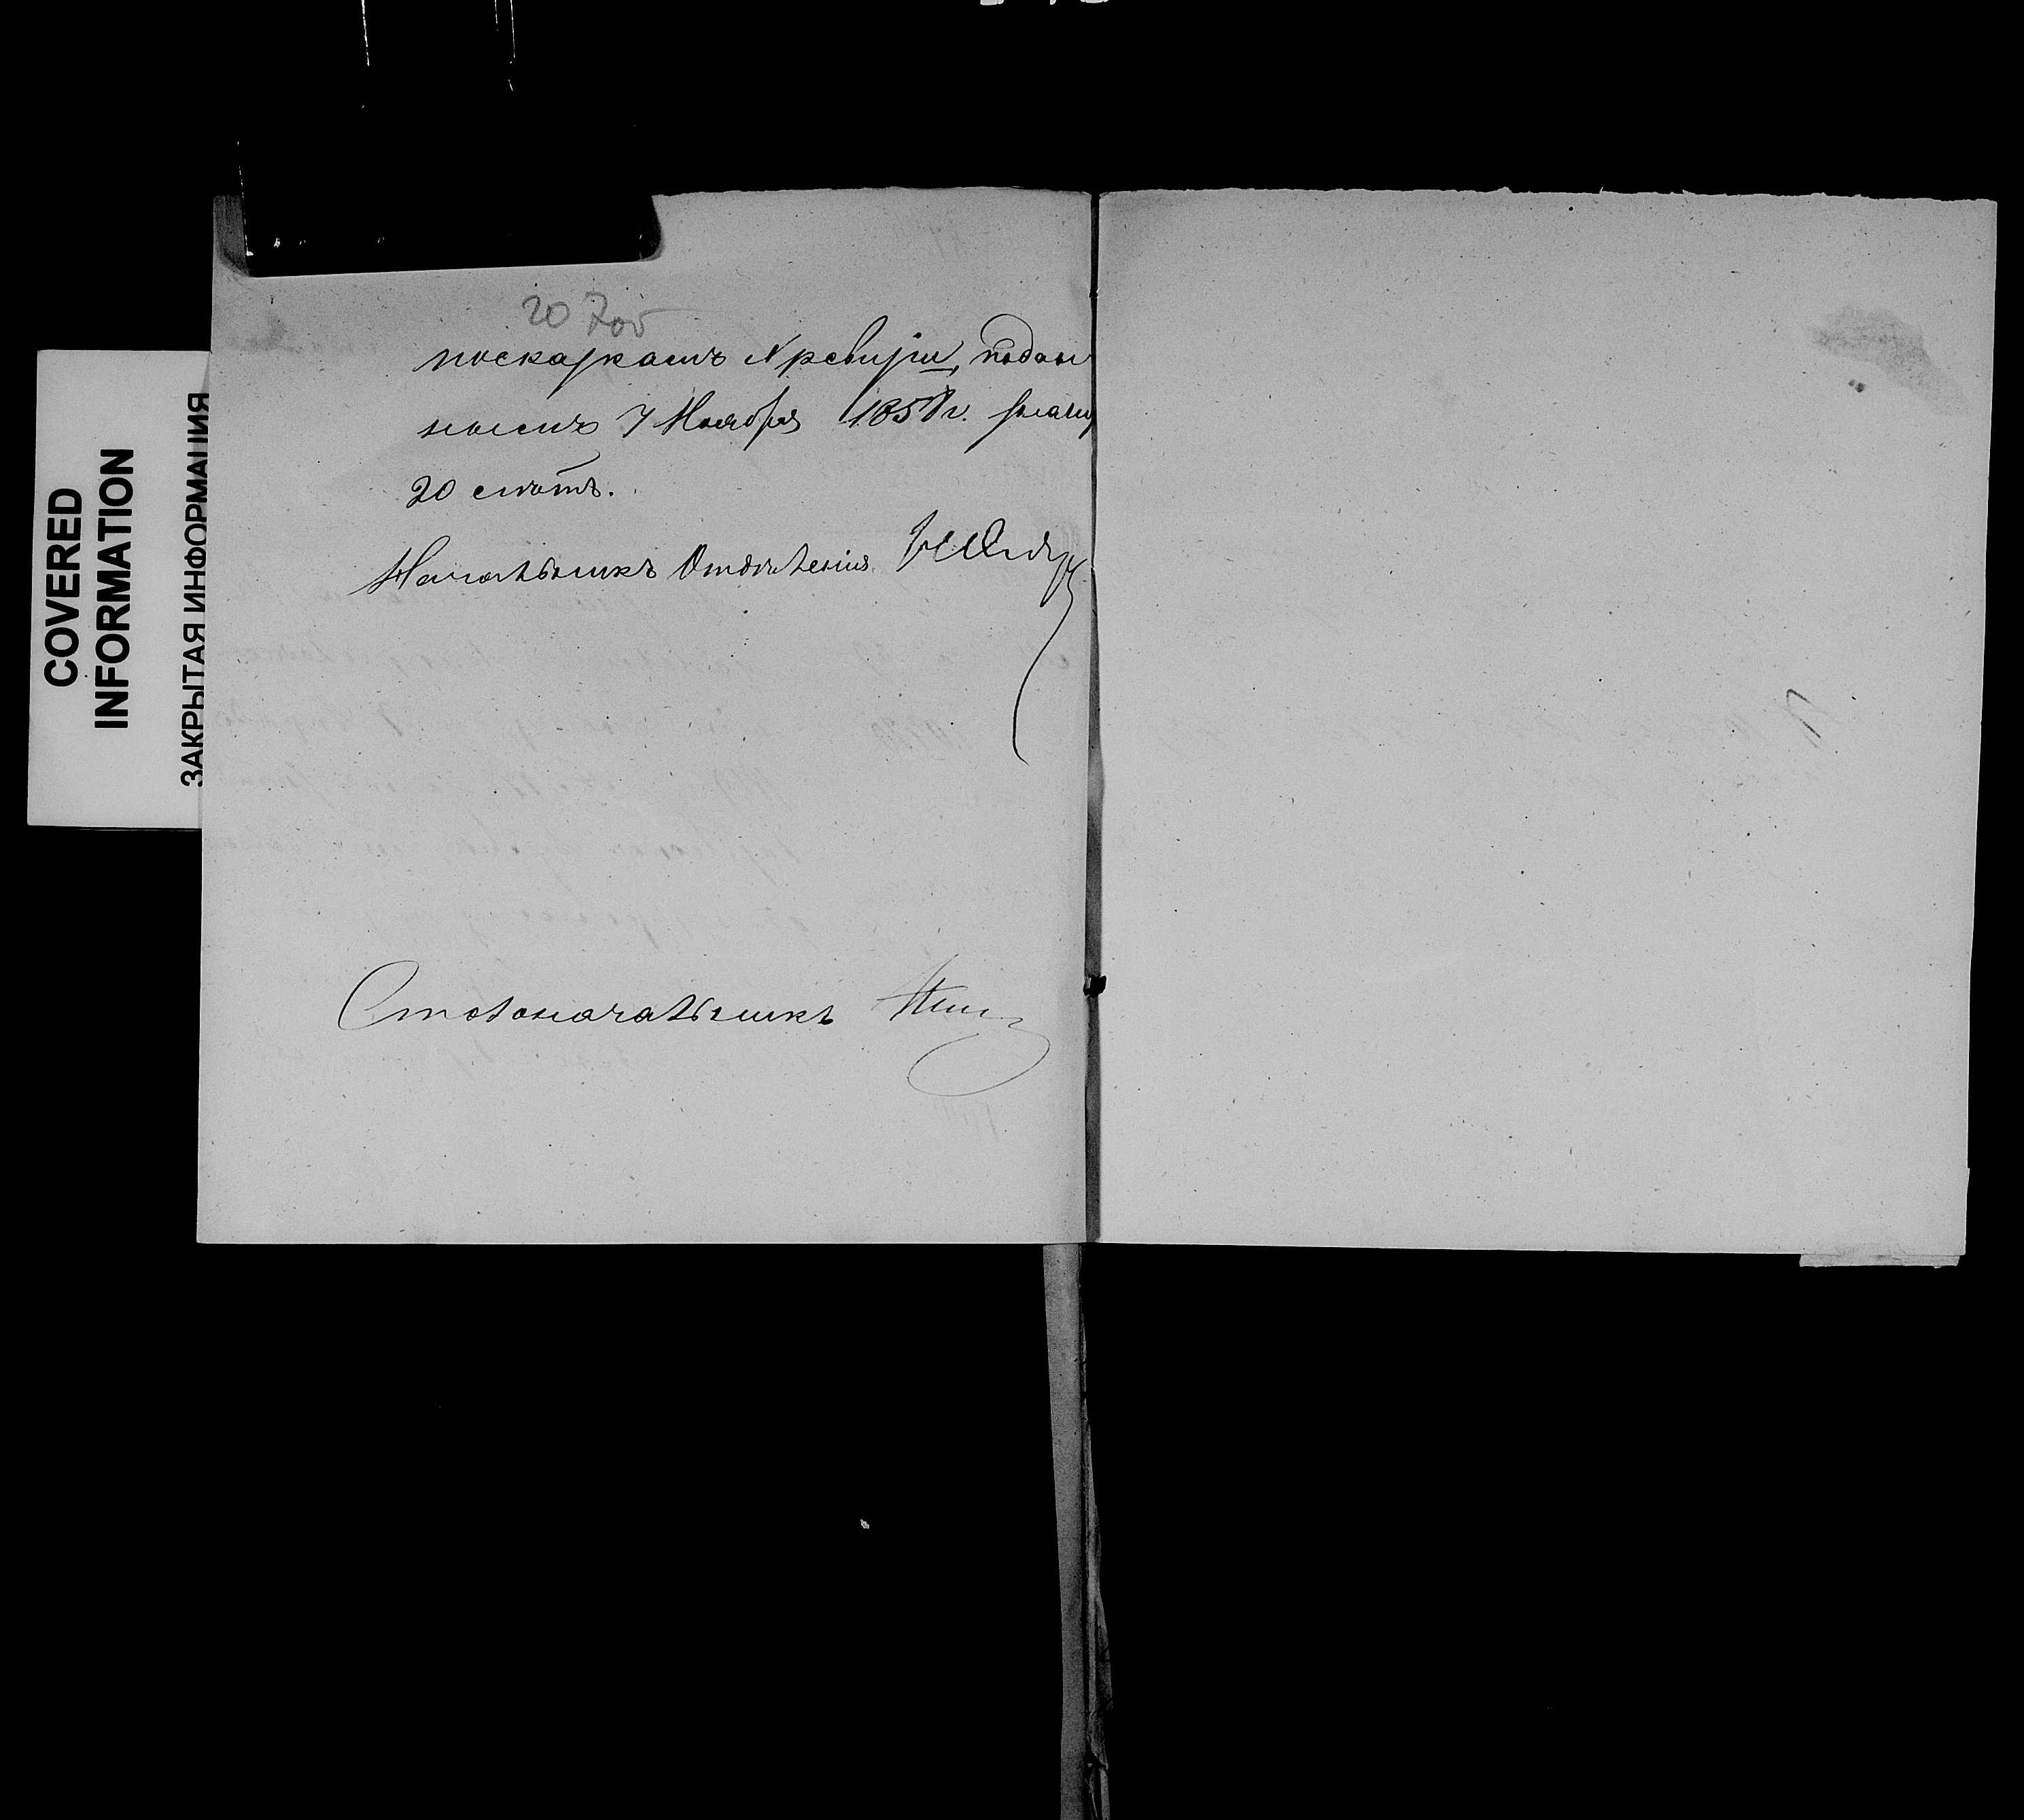 COVERED
INFORMATION
ЗАКРЫТАЯ ИНФОРМАЦИЯ
20 7об
по сказкамъ X ревизіи, подан
нымъ 7 Ноября 1858 г. 
20 лѣтъ.
Начальникъ Отдѣленія
Столоначальникъ